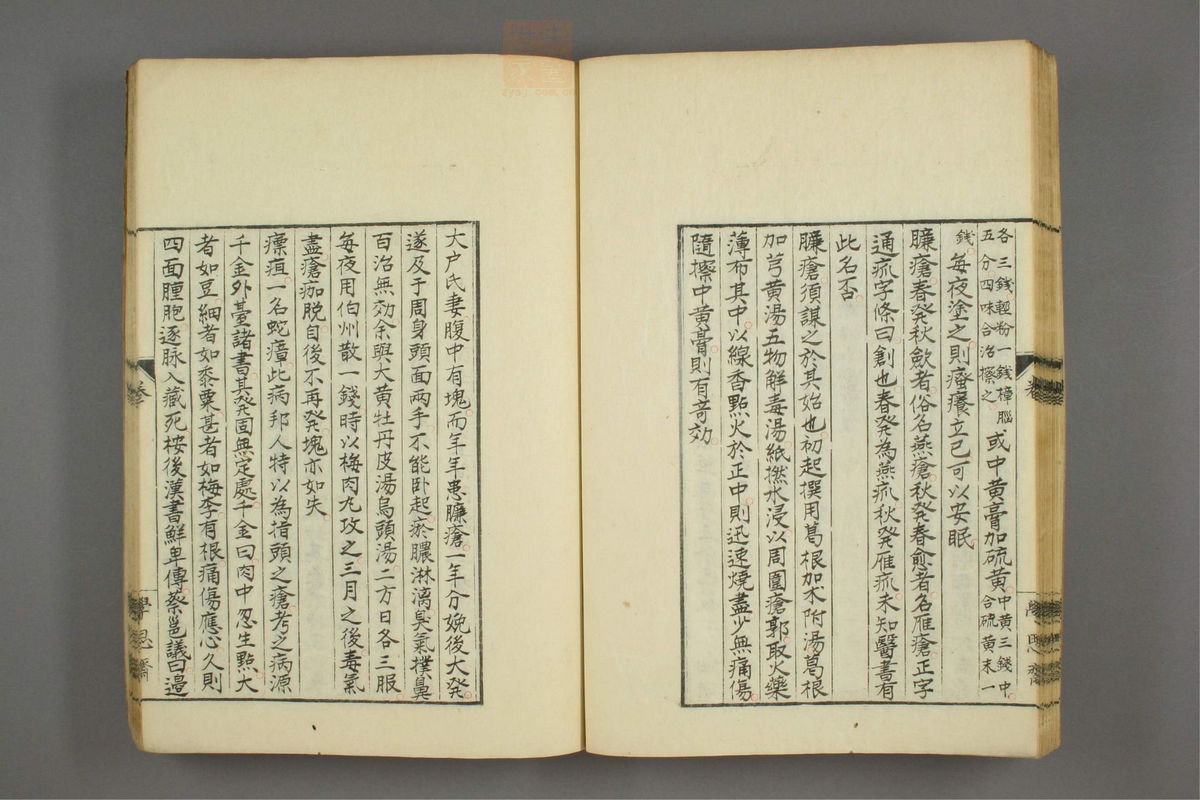 各三錢輕粉一錢樟腦五分四味合治擦之或中黃膏加硫黃中黃三錢中合硫黃末一
錢每夜塗之則瘙癢立已可以安眠
臁瘡春発秋歛者俗名燕瘡秋発春愈者名雁瘡正字
通疻字條曰創也春発為燕疻秋発雁疻未知醫書有
此名否
臁瘡須謀之於其始也初起撰用葛根加朮附湯葛根
加芎黃湯五物解毒湯紙撚水浸以周圍瘡郭取火藥
薄布其中以線香點火於正中則迅速燒盡少無痛傷
隨擦中黃膏則有竒効
大户氏妻腹中有塊而年年患臁瘡一年分娩後大発
遂及于周身頭面兩手不能卧起瘀膿淋漓臭氣撲鼻
百治無効余與大黃牡丹皮湯烏頭湯二方日各三服
每夜用伯州散一錢時以梅肉丸攻之三月之後毒氣
盡瘡痂脱自後不再発塊亦如失
瘭疽一名蛇瘴此病邦人特以為指頭之瘡考之病源
千金外臺諸書其発固無定處千金曰肉中忽生點大
者如豆細者如黍粟甚者如梅李有根痛傷應心久則
四面腫胞逐脉入藏死桉後漢書鮮卑傳蔡邕議曰邉
學思齋